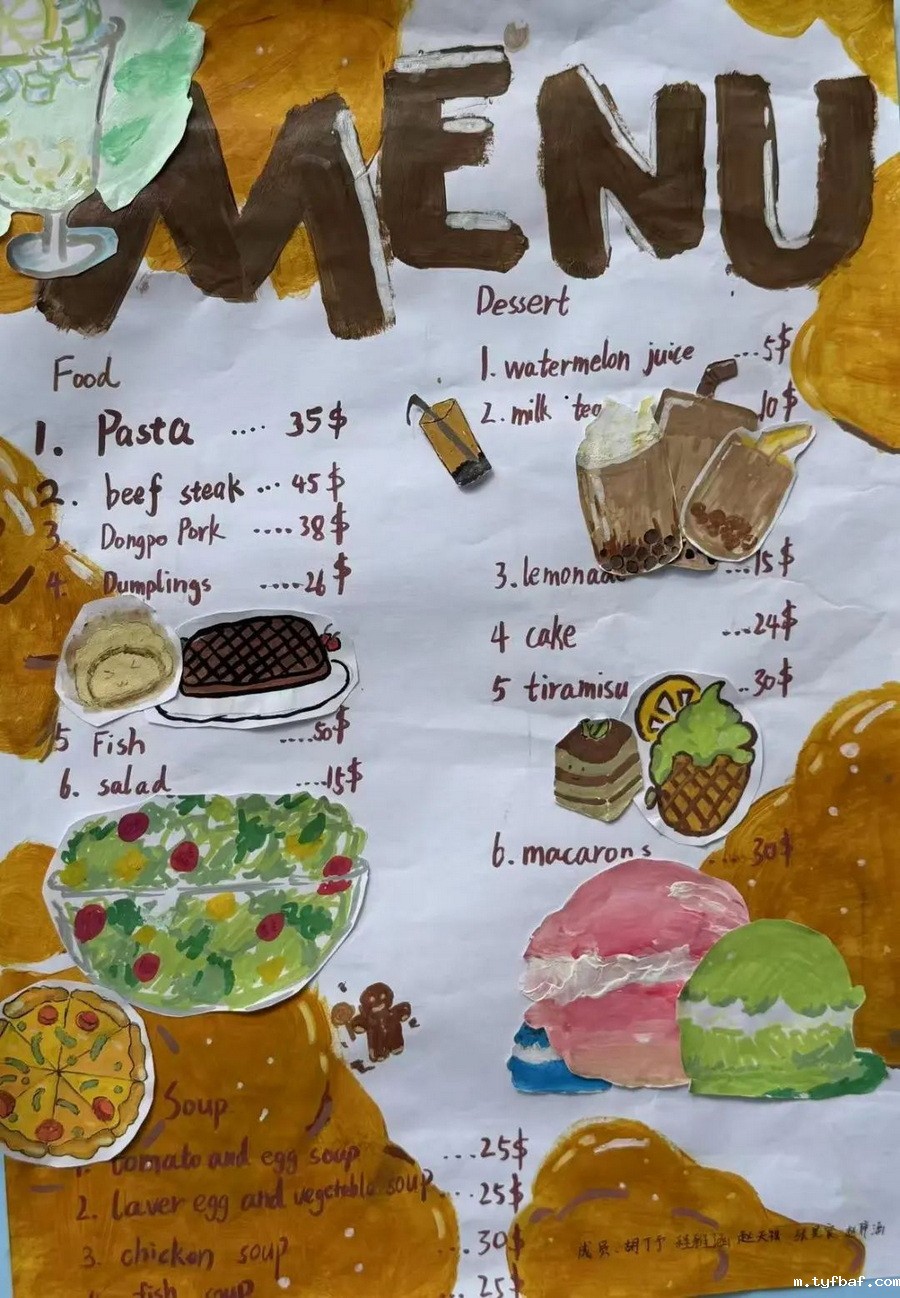 MENU
Food
1. Pasta .... 35$
2. beef steak ... 45$
3. Dongpo Pork .... 38$
4. Dumplings .... 26$
5 Fish .... 50$
6. salad .... 15$
Soup
1. tomato and egg soup ... 25$
2. laver egg and vegetable soup ... 25$
3. chicken soup ... 30$
4. fish soup 25$
Dessert
1. watermelon juice ... 5$
2. milk tea 10$
3. lemonade ... 15$
4 cake ... 24$
5 tiramisu .. 30$
6. macarons .... 30$
成员:胡丁予 赵天祺
m.tyfbaf.com